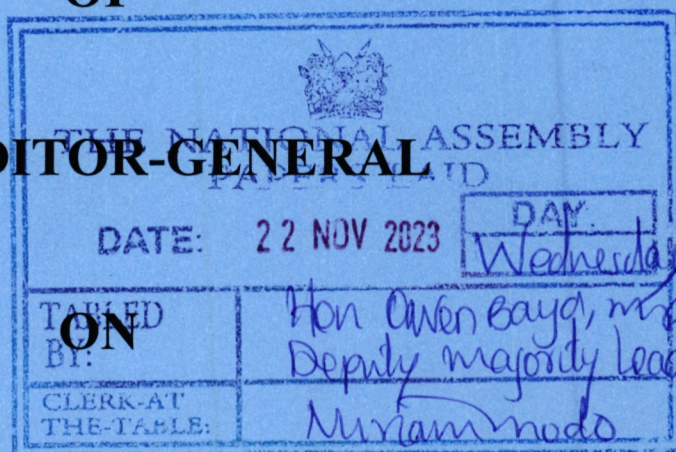 OF
THE NATIONAL ASSEMBLY
DITOR-GENERAL
PAPERS LAID
DATE: 22 NOV 2023
DAY.
Wednesda
TABLED
BY:
ON
Hon Owen Baya, MP
Deputy Majority Lead
CLERK-AT
THE-TABLE: